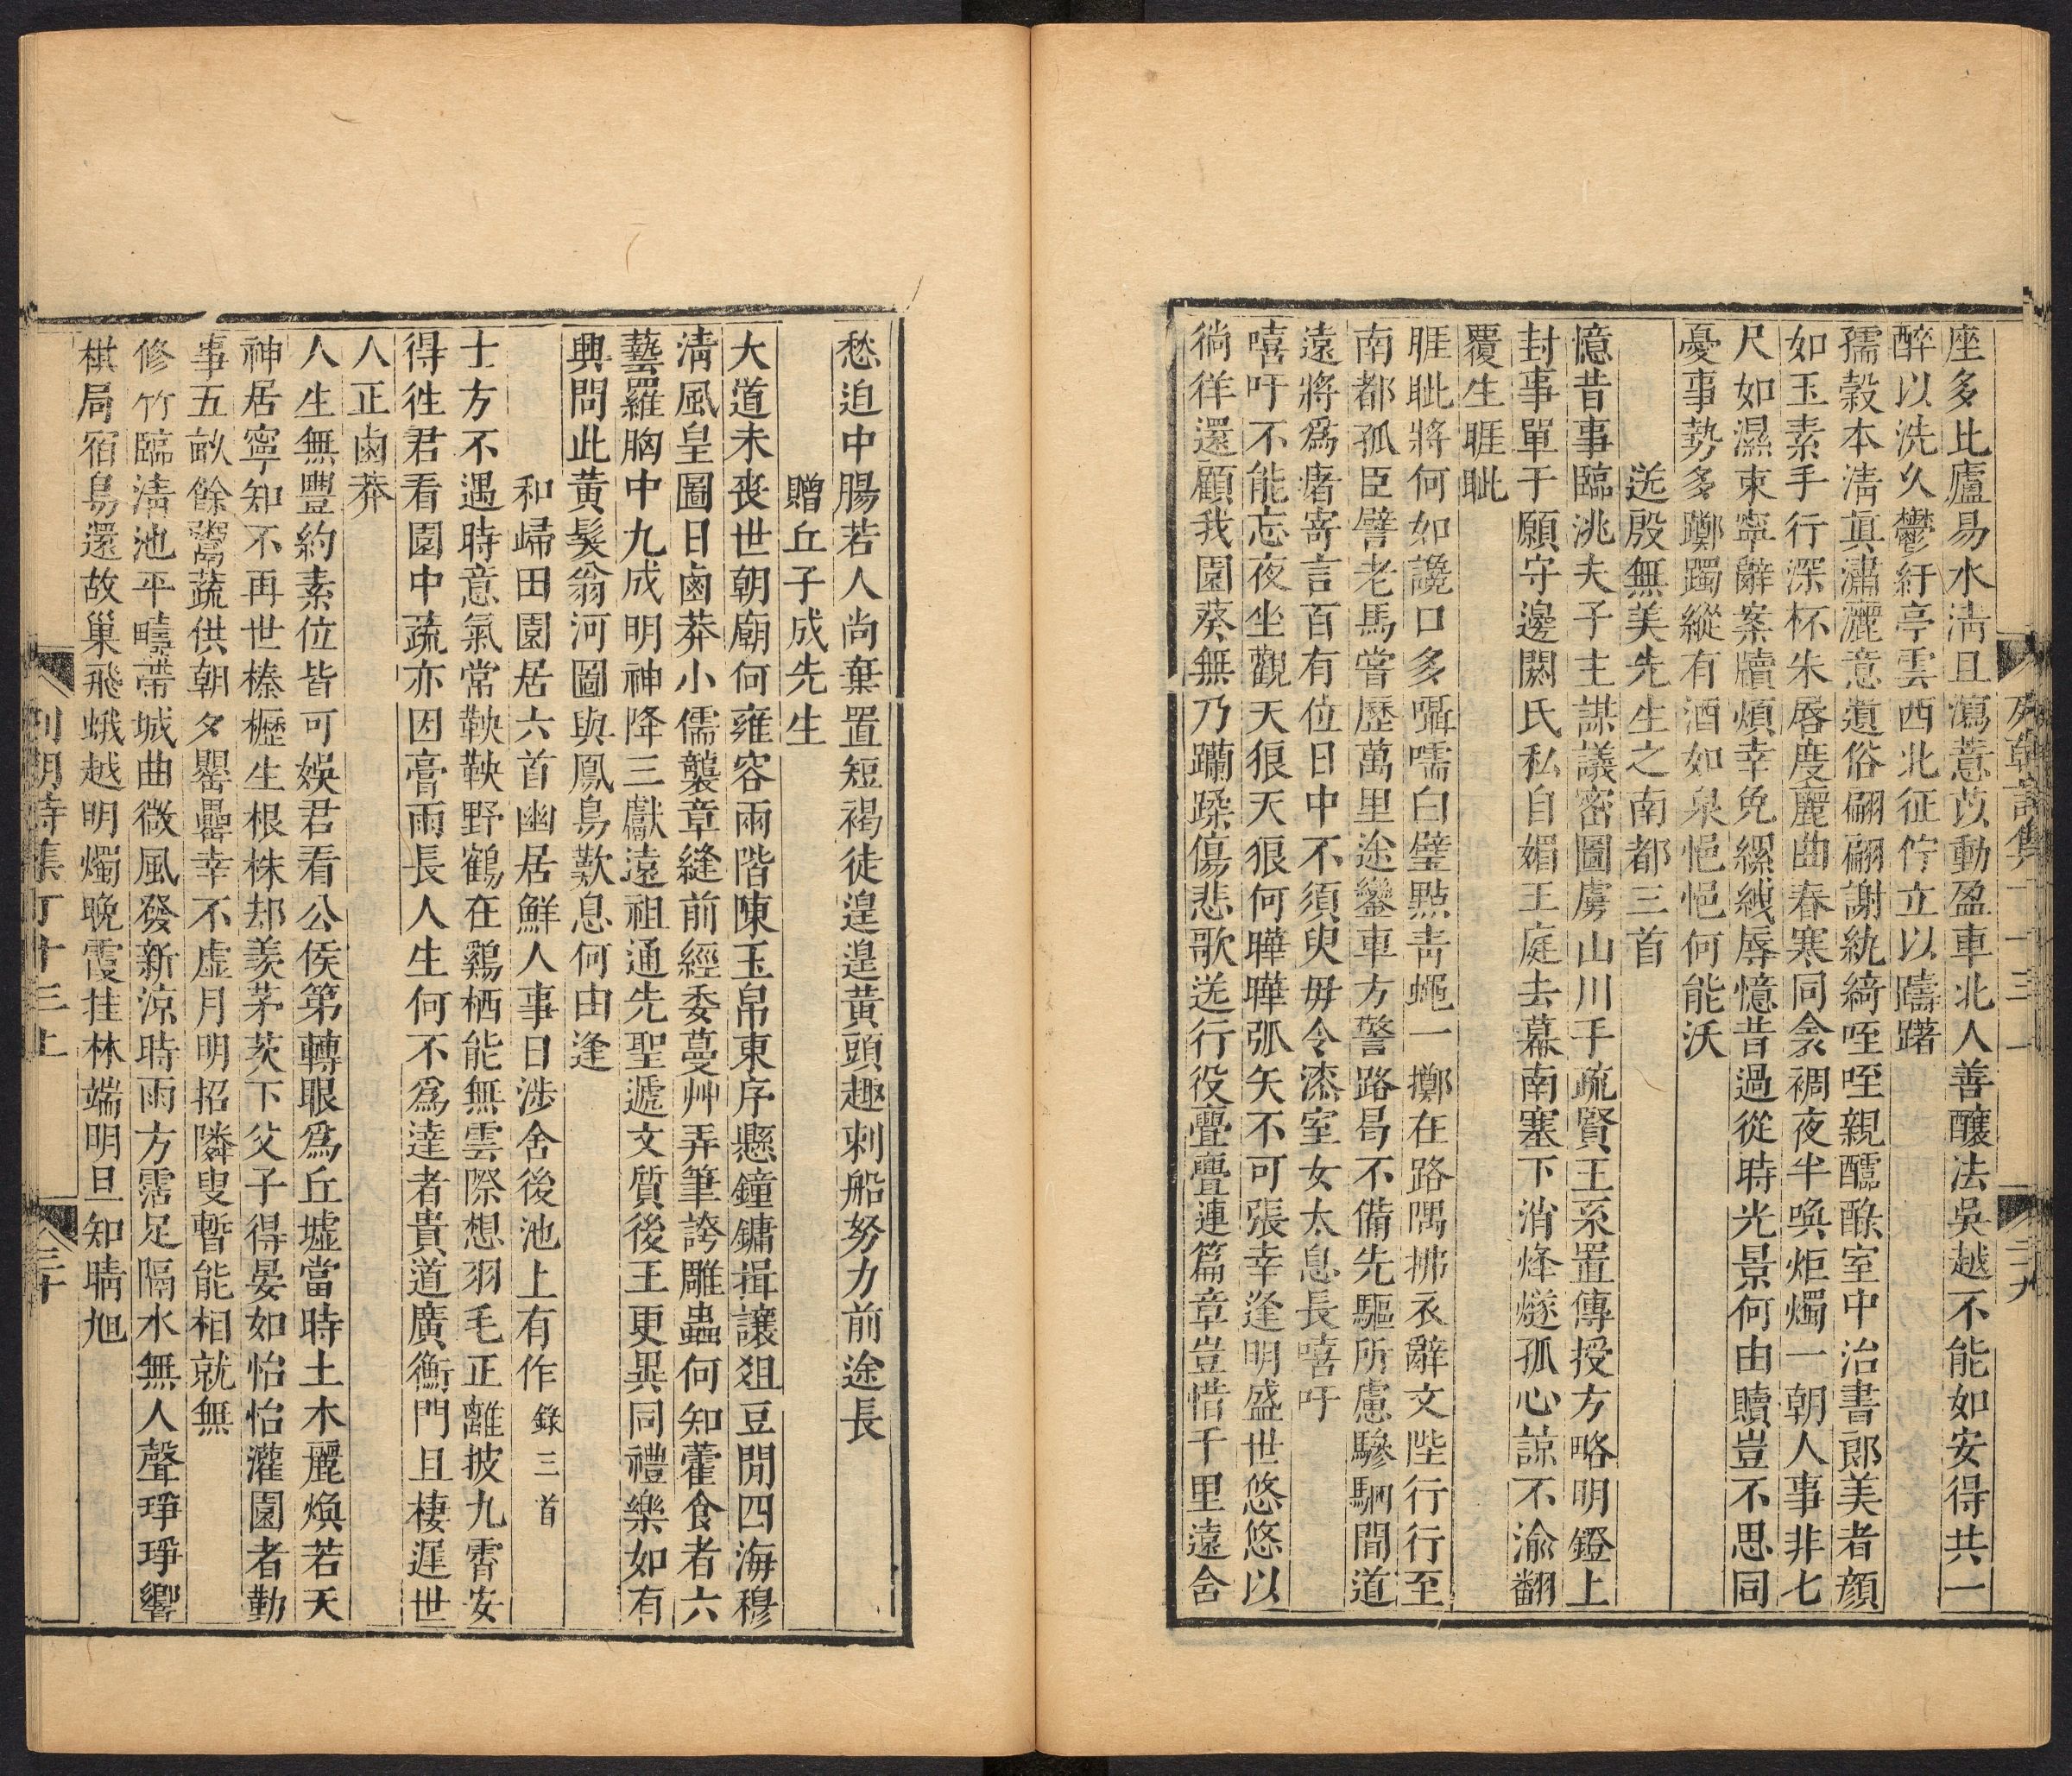 座多比廬易水淸且瀉薏苡動盈車北人善釀法吳越不能如安得共一
醉以洗久鬱紆亭雲西北征佇立以躊躇
孺穀本淸眞瀟灑意遺俗翩翩謝紈綺咥咥親醽醁室中治書郞美者顏
如玉素手行深杯朱唇度麗曲春寒同衾裯夜半喚炬燭一朝人事非七
尺如濕束寧辭案牘煩幸免縲絏辱憶昔過從時光景何由贖豈不思同
憂事勢多躑躅縱有酒如泉悒悒何能沃
送殷無美先生之南都三首
憶昔事臨洮夫子主謀議密圖虜山川手疏賢王系置傳授方略明鐙上
封事單于願守邊閼氏私自媚王庭去幕南塞下消烽燧孤心諒不渝翻
覆生睚眦
睚眦將何如讒口多囁嚅白璧點靑蠅一擲在路隅拂衣辭文陛行行至
南都孤臣譬老馬嘗歷萬里途鑾車方警路曷不備先驅所慮驂駟間道
遠將爲屠寄言百有位日中不須臾毋令漆室女太息長嘻吁
嘻吁不能忘夜坐觀天狼天狼何曄曄弧矢不可張幸逢明盛世悠悠以
徜徉還顧我園葵無乃躪蹂傷悲歌送行役亹亹連篇章豈惜千里遠舍
列朝詩集 丁十三上 二十九
愁迫中腸若人尚棄置短褐徒遑遑黃頭趣刺船努力前途長
贈丘子成先生
大道未喪世朝廟何雍容兩階陳玉帛東序懸鐘鏞揖讓俎豆閒四海穆
淸風皇圖日鹵莽小儒襲章縫前經委蔓艸弄筆誇雕蟲何知藿食者六
藝羅胸中九成明神降三獻遠祖通先聖遞文質後王更異同禮樂如有
興問此黃髮翁河圖與鳳鳥歎息何由逢
和歸田園居六首幽居鮮人事日涉舍後池上有作 錄三首
士方不遇時意氣常鞅鞅野鶴在鷄栖能無雲際想羽毛正離披九霄安
得徃君看園中蔬亦因膏雨長人生何不爲達者貴道廣衡門且棲遲世
人正鹵莽
人生無豐約素位皆可娛君看公侯第轉眼爲丘墟當時土木麗煥若天
神居寧知不再世榛櫪生根株却羨茅茨下父子得晏如怡怡灌園者勤
事五畝餘鬻蔬供朝夕罌罍幸不虛月明招隣叟暫能相就無
修竹臨淸池平疇帶城曲微風發新涼時雨方霑足隔水無人聲琤琤響
棋局宿鳥還故巢飛蛾越明燭晚霞挂林端明旦知晴旭
列朝詩集 丁十三上 三十